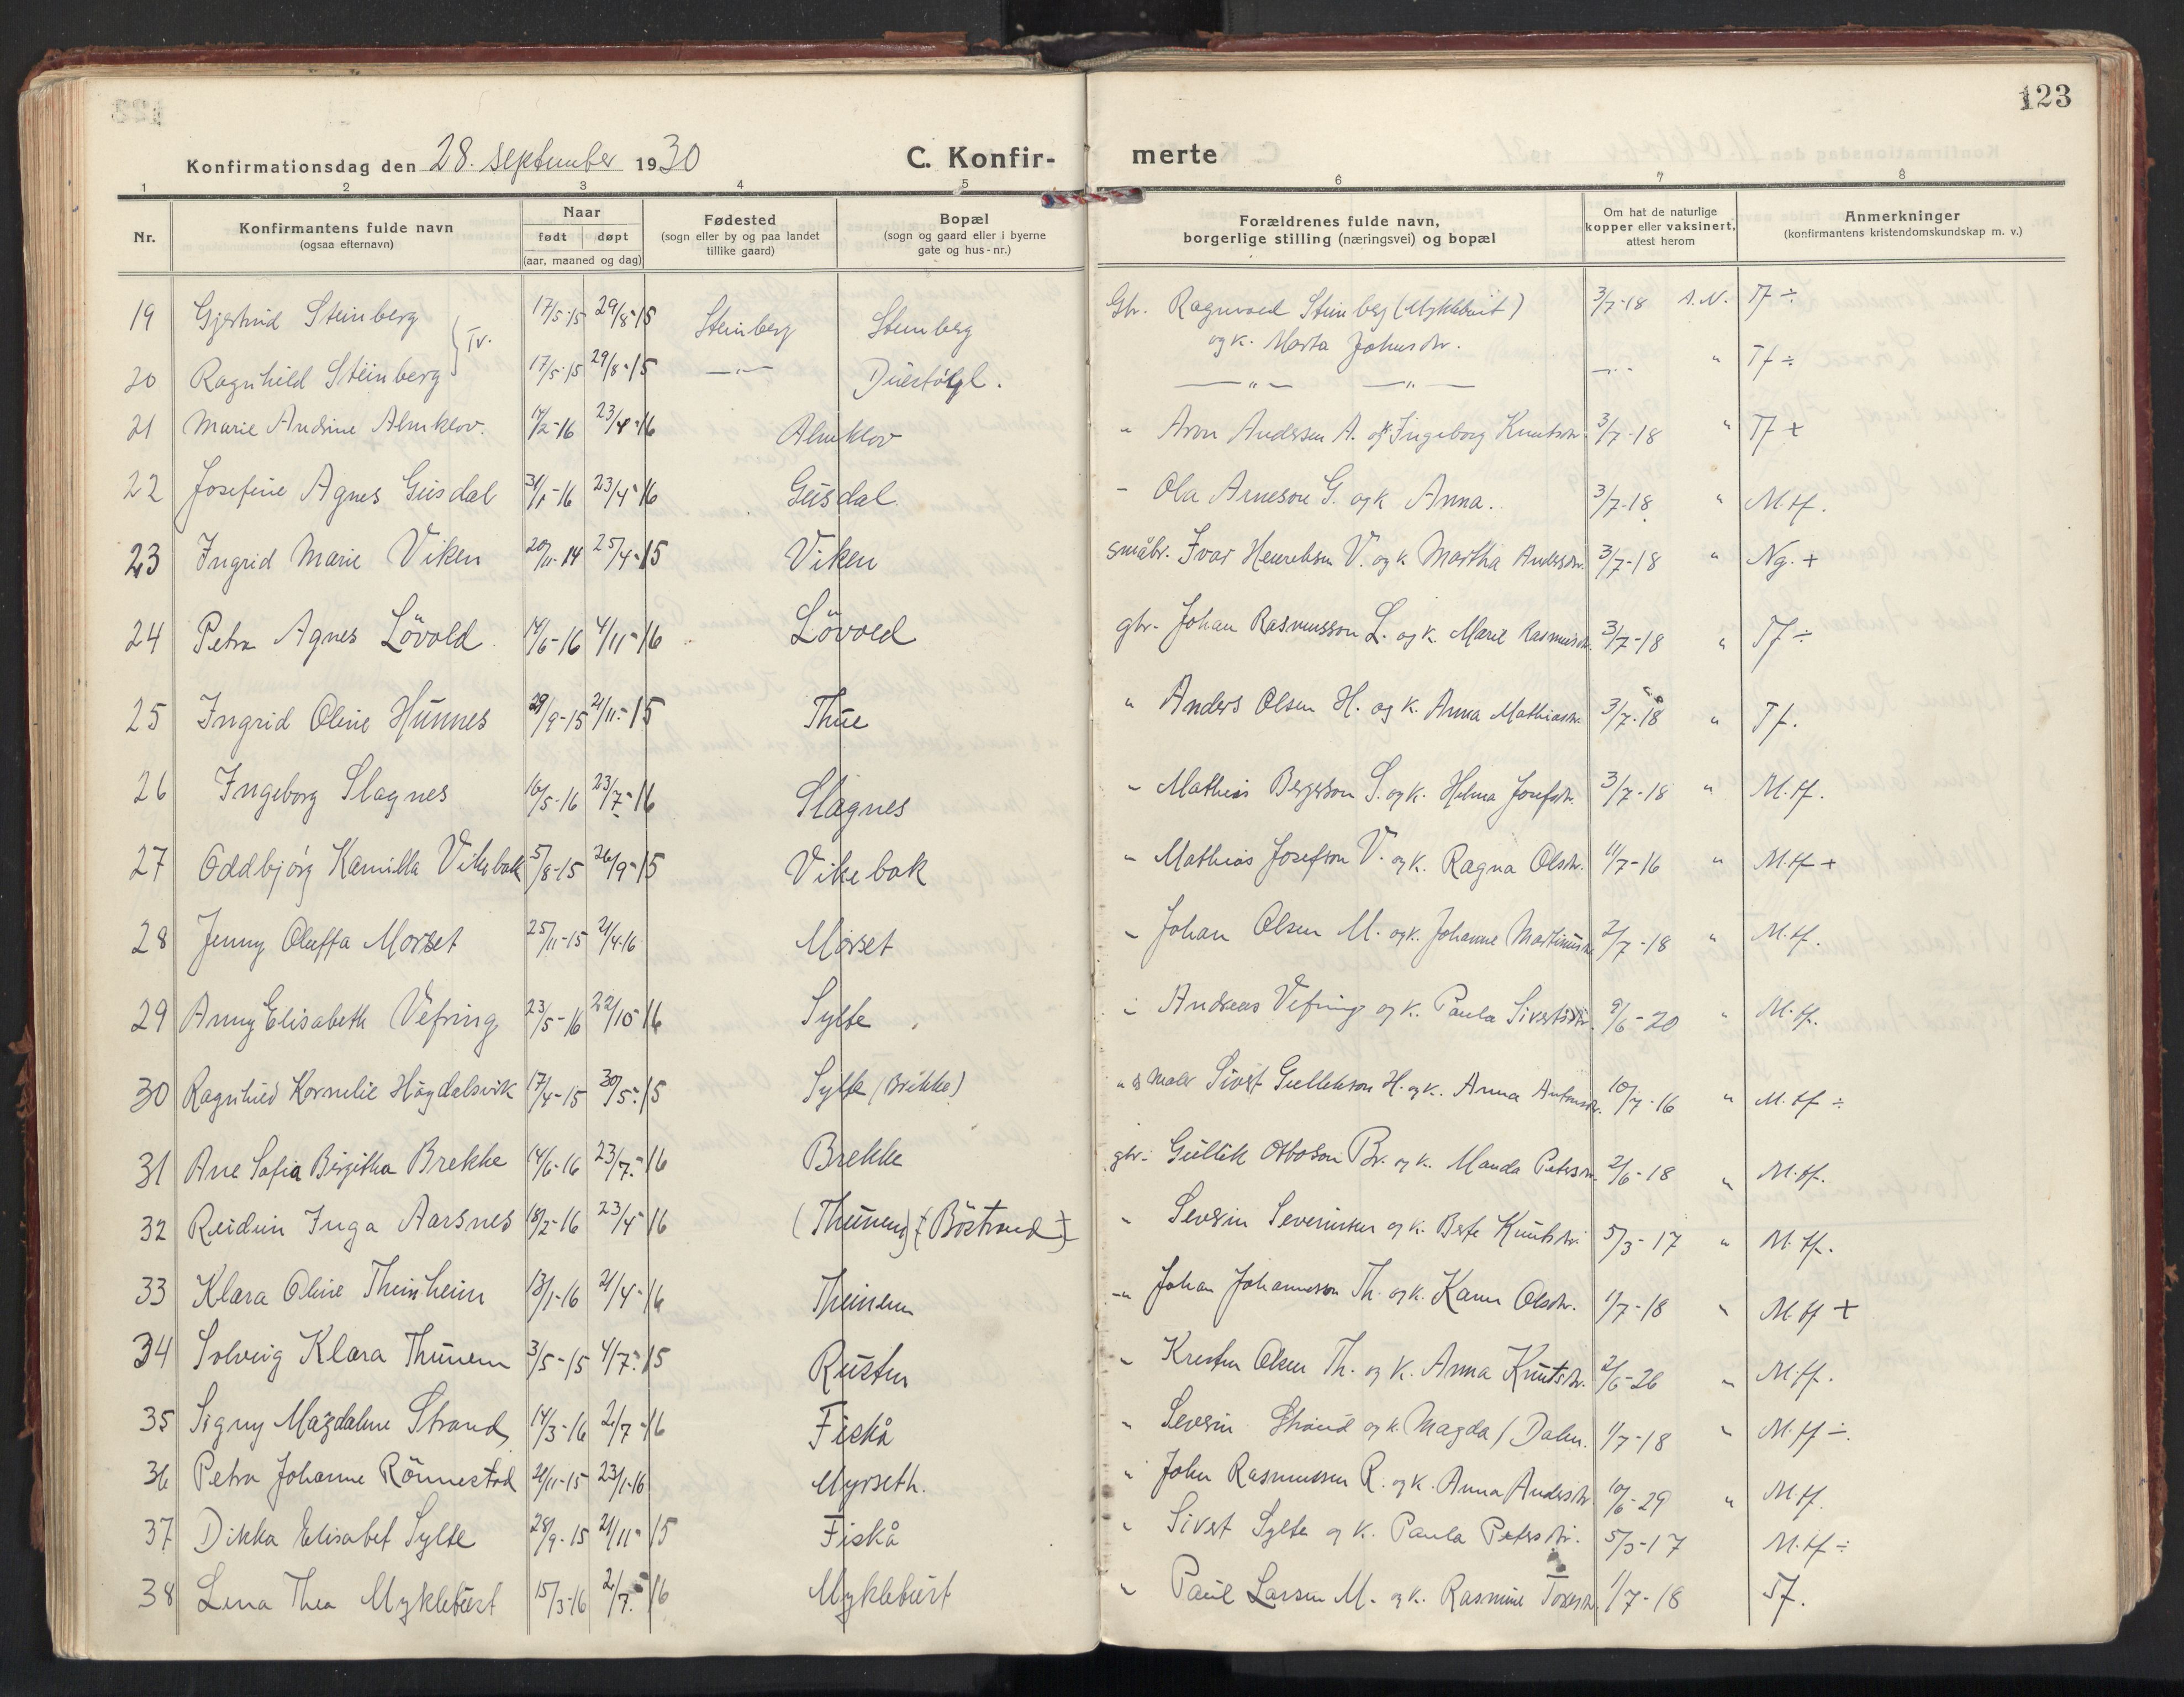 123
Konfirmationsdag den 28. september 1930
C. Konfir- merte
1 2 3 4 5 6 7 8
Nr.
Konfirmantens fulde navn
(ogsaa efternavn)
Naar
født døpt
(aar, maaned og dag)
Fødested
(sogn eller by og paa landet
tillike gaard)
Bopæl
(sogn og gaard eller i byerne
gate og hus-nr.)
Forældrenes fulde navn,
borgerlige stilling (næringsvei) og bopæl
Om hat de naturlige
kopper eller vaksinert,
attest herom
Anmerkninger
(konfirmantens kristendomskundskap m. v.)
19 Gjertrud Steinberg 17/5-15 29/8-15 Steinberg Steinberg Gbr. Ragnvald Steinberg (Myklebust) 3/7-18 A.N. Tf ÷
og k. Marta Johnsdtr.
Tv.
20 Ragnhild Steinberg 17/5-15 29/8-15 —"— —"— —"— —"— " Tf ÷
21 Marie Andrine Almklov. 17/2-16 23/4-16 Almklov " Aron Andersen A. og k. Ingeborg Knutsdtr. 3/7-18 " Tf +
22 Josefine Agnes Gusdal 31/1-16 23/4-16 Gusdal - Ola Arneson G. og k Anna. 3/7-18 " M.tf.
23 Ingrid Marie Viken 20/11-14 25/4-15 Viken småbr. Ivar Henrikson V. og k Martha Andersdtr. 3/7-18 " Ng. +
24 Petra Agnes Lövold 14/6-16 4/11-16 Lövold gbr. Johan Rasmusson L. og k. Marie Rasmusdtr. 3/7-18 " Tf ÷
25 Ingrid Oline Hunnes 28/9-15 21/11-15 Thue " Anders Olsen H. og k. Anna Mathiasdtr. 3/7-18 " Tf.
26 Ingeborg Slagnes 16/5-16 23/7-16 Slagnes " Mathias Bergeson S. og k. Helma Josefsdtr. 3/7-18 " M.tf.
27 Oddbjörg Kamilla Vikebak 5/8-15 26/9-15 Vikebak " Mathias Josefson V. og k. Ragna Olsdtr. 11/7-16 " M.tf +
28 Jenny Oluffa Morset 25/11-15 21/4-16 Mörset " Johan Olsen M. og k. Johanne Martinusdtr. 2/7-18 " M.tf.
29 Anny Elisabeth Vefring 23/5-16 22/10-16 Sylte " Andreas Vefring og k. Paula Sivertsdtr. 9/6-20 " M.tf.
30 Ragnhild Kornelie Högdalsvik 17/4-15 30/5-15 Sylte (Brekke) " & maler Sivert Gulliksson H. og k. Anna Antonsdtr. 10/7-16 " M.tf ÷
31 Ane Sofia Birgitha Brekke 14/6-16 23/7-16 Brekke gbr. Gullik Ottoson Br. og k. Manda Petersdtr. 2/6-18 " M.tf.
32 Reidun Inga Aarsnes 18/2-16 23/4-16 (Thunem) (Böstrand) " Severin Severinsen og k. Berte Knutsdtr. 5/3-17 " M.tf.
33 Klara Oline Thunheim 13/1-16 21/4-16 Thunem " Johan Johannesson Th. og k. Karen Olsdtr. 1/7-18 " M.tf +
34 Solveig Klara Thunem 3/5-15 4/7-15 Rusten " Kresten Olsen Th. og k. Anna Knutsdtr. 2/6-26 " M.tf.
35 Signy Magdalene Strand 14/3-16 2/7-16 Fiskå " Severin Strand og k. Magda f. Dalen. 1/7-18 " M.tf ÷.
36 Petra Johanne Rönnestad 21/11-15 23/1-16 Myrseth. " John Rasmussen R. og k. Anna Andersdtr. 10/6-29 " M.tf.
37 Dikka Elisabet Sylte 28/9-15 21/11-15 Fiskå " Sivert Sylte og k. Paula Petersdtr. 5/3-17 M.tf ÷
38 Lina Thea Myklebust 15/3-16 2/7-16 Myklebust " Paul Larsen M. og k. Rasmine 1/7-18 Tf.